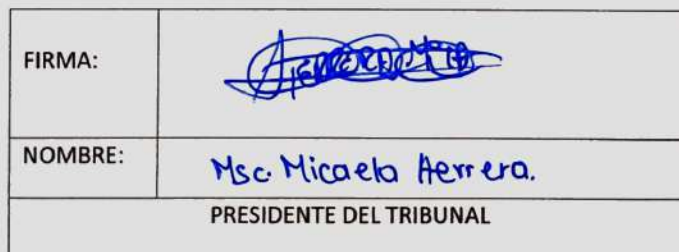 FIRMA:
NOMBRE: Msc. Micaela Herrera.
PRESIDENTE DEL TRIBUNAL